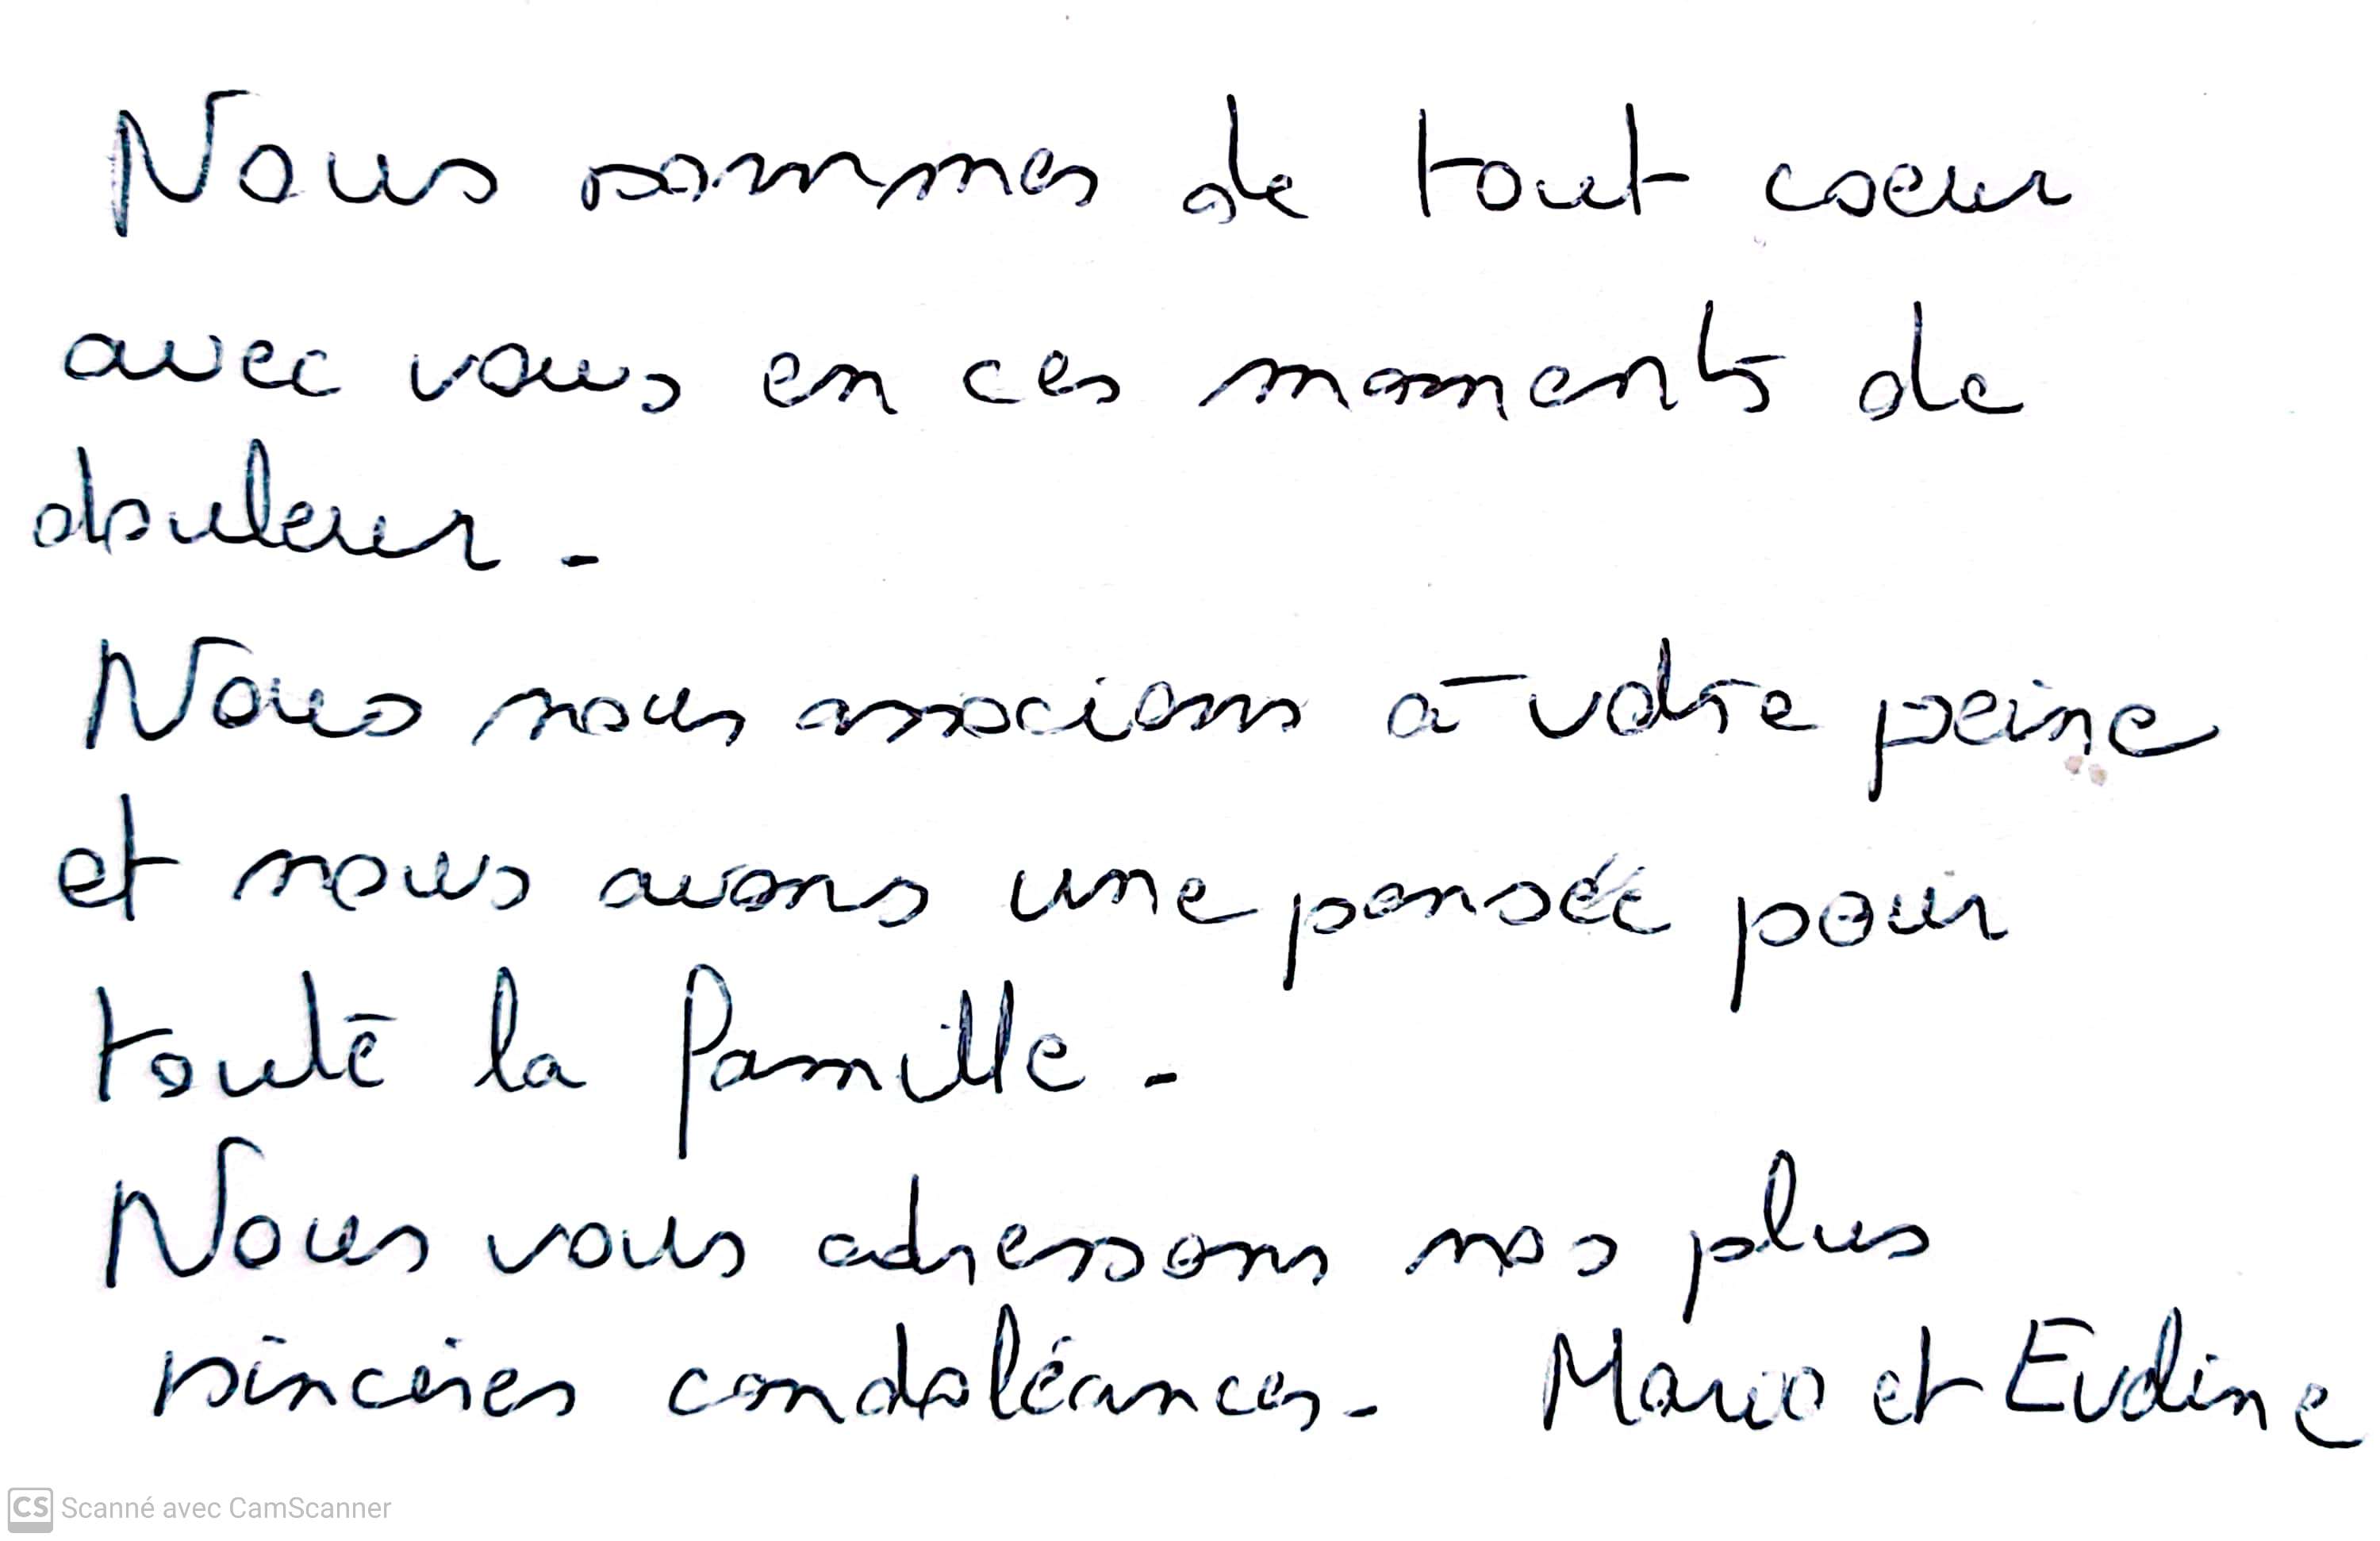 Nous sommes de tout coeur
avec vous en ces moments de
douleur.
Nous nous associons à votre peine
et nous avons une pensée pour
toute la famille.
Nous vous adressons nos plus
sincères condoléances. Mario et Evoline
CS Scanné avec CamScanner